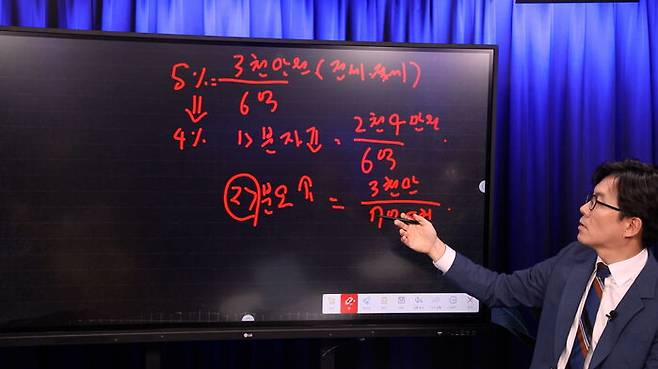 5%= 3천만원 (전세.월세)
6억
⇓
4% 1> 분자↓ = 2천4만원
6억
2> 분모↑ = 3천만
LG